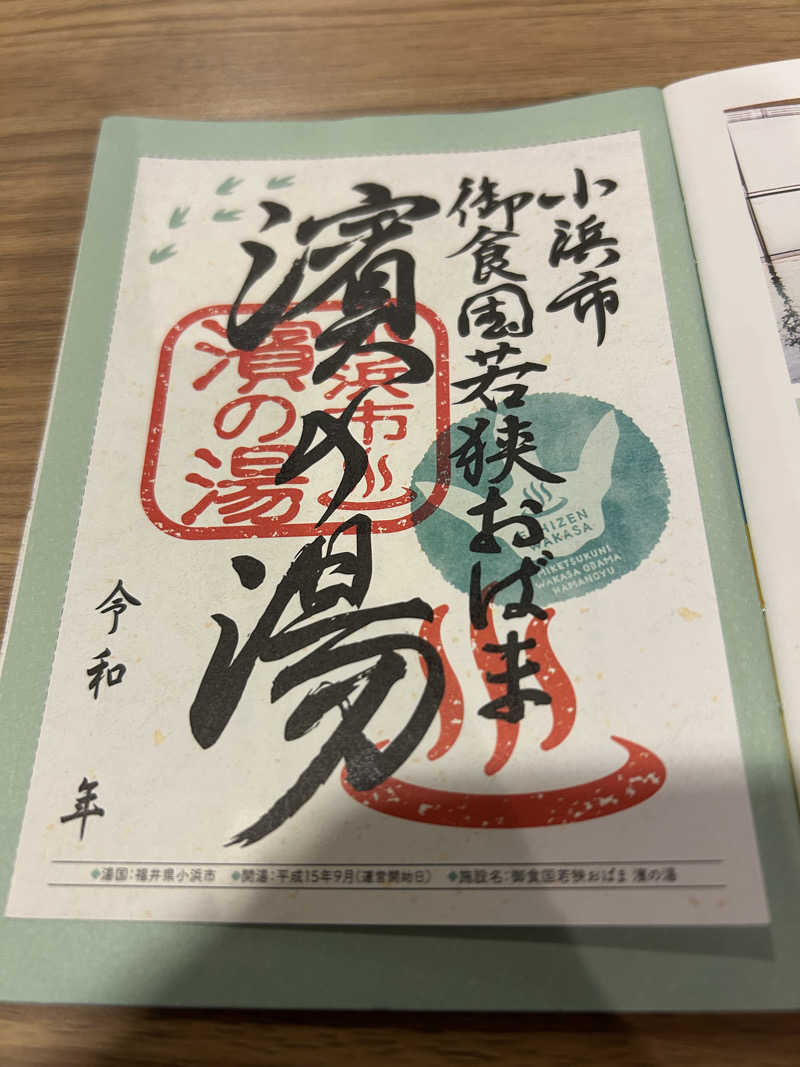 小浜市
御食国若狭おばま
濱の湯
小浜市
濱の湯
WAKASA
MIKETSUKUNI
WAKASA OBAMA
HAMANOYU
令和
年
◆湯国：福井県小浜市 ◆開湯：平成15年9月（運営開始日） ◆施設名：御食国若狭おばま 濱の湯